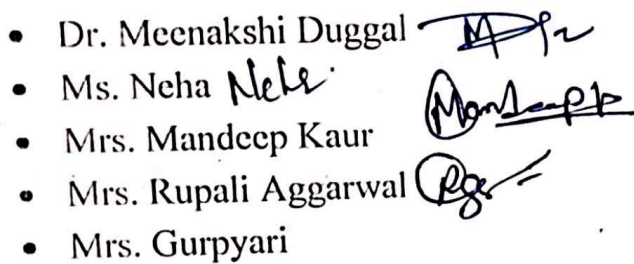 • Dr. Meenakshi Duggal
• Ms. Neha Neha
• Mrs. Mandeep Kaur Mandeep k
• Mrs. Rupali Aggarwal
• Mrs. Gurpyari